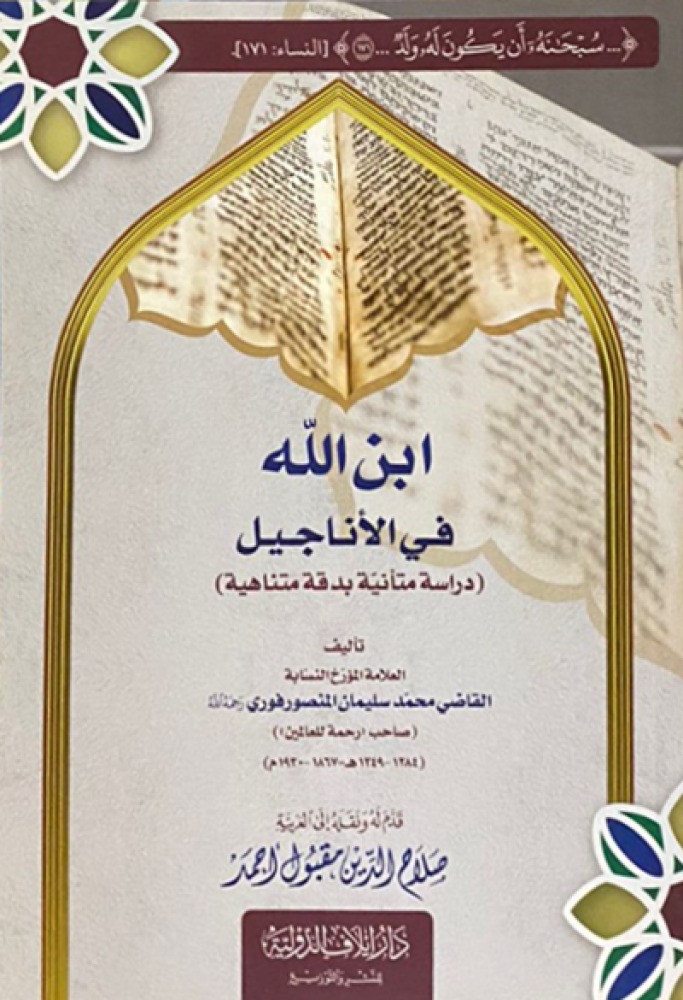 ﴿... سُبْحَٰنَهُۥٓ أَن يَكُونَ لَهُۥ وَلَدٌ ... ﴿١٧١﴾﴾ [النساء: ١٧١].
ابن اللّه
في الأناجيل
(دراسة متأنيّة بدقة متناهية)
تأليف
العلامة المؤرخ النسابة
القاضي محمّد سليمان المنصورفوري رحمه الله
(صاحب «رحمة للعالمين»)
(١٢٨٤-١٣٤٩هـ-١٨٦٧-١٩٣٠م)
قدّم له ونقله إلى العربية
صلاح الدّين مقبول أحمد
دار إيلاف الدولية
للنشر والتوزيع